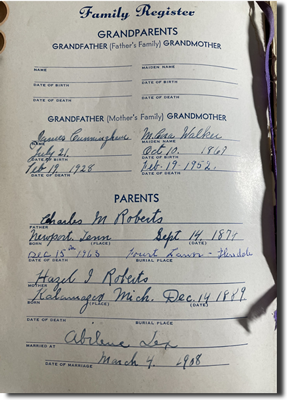 Family Register
GRANDPARENTS
GRANDFATHER (Father's Family) GRANDMOTHER
NAME MAIDEN NAME
DATE OF BIRTH DATE OF BIRTH
DATE OF DEATH DATE OF DEATH
GRANDFATHER (Mother's Family) GRANDMOTHER
James Cunningham Walker
NAME MAIDEN NAME
July 21, Oct 10. 1867
DATE OF BIRTH DATE OF BIRTH
Feb 19 1928 Feb. 19. 1952
DATE OF DEATH DATE OF DEATH
PARENTS
Charles M Roberts
FATHER
Newport, Tenn Sept 14, 187
BORN (PLACE) (DATE)
Dec 15th 1965 Lawn -
DATE OF DEATH BURIAL PLACE
Hazel I Roberts
MOTHER
Mich. Dec. 14 1889
BORN (PLACE) (DATE)
DATE OF DEATH BURIAL PLACE
Abilene Tex
MARRIED AT
March 4, 1908
DATE